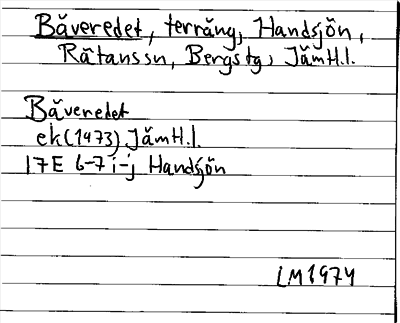 Bäveredet, terräng, Handsjön,
Rätanssn, Bergstg, Jämtl.l.
Bäveredet
ek (1973) Jämtl.l.
17E 6-7 i-j Handsjön
LM1974